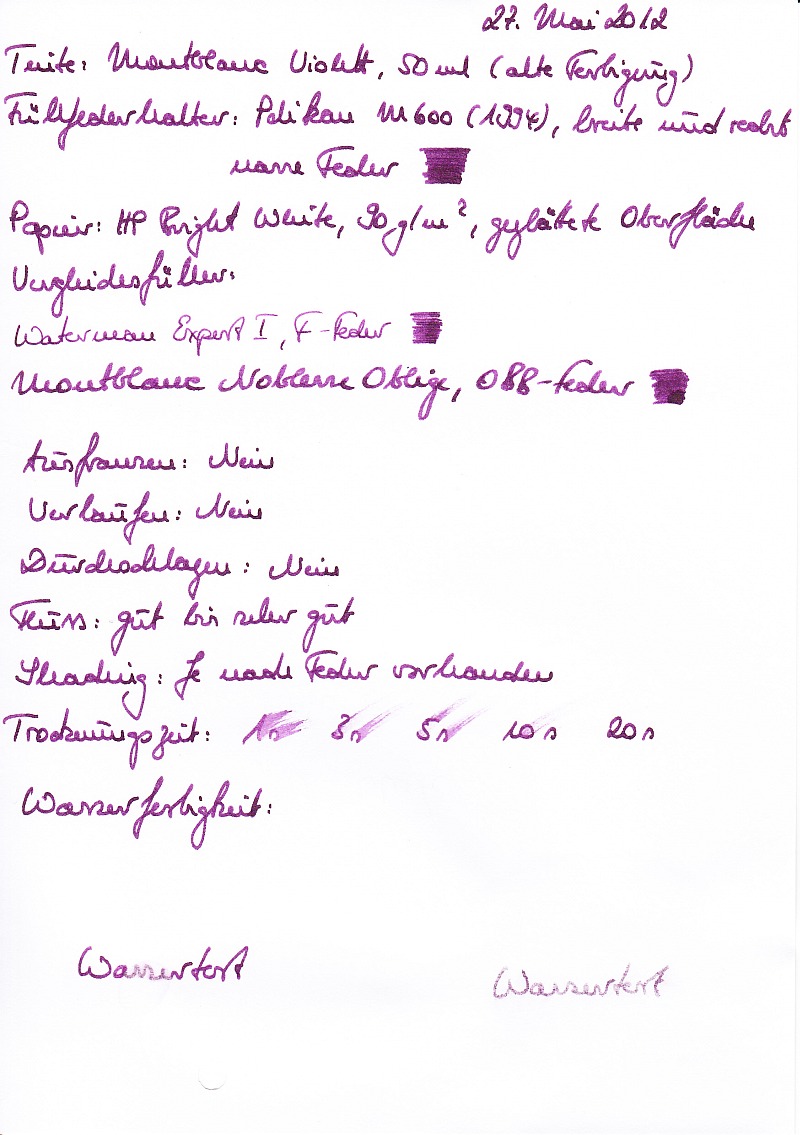 27. Mai 2012
Tinte: Montblanc Violett, 50 ml (alte Fertigung)
Füllfederhalter: Pelikan M600 (1994), breite und recht
nasse Feder
Papier: HP Bright White, 90 g/m², geglättete Oberfläche
Vergleichsfüller:
Waterman Expert I, F-Feder
Montblanc Noblesse Oblige, OBB-Feder
Ausfransen: Nein
Verlaufen: Nein
Durchschlagen: Nein
Fluss: gut bis sehr gut
Shading: Je nach Feder vorhanden
Trocknungszeit: 1s 3s 5s 10s 20s
Wasserfestigkeit:
Wassertest Wassertest